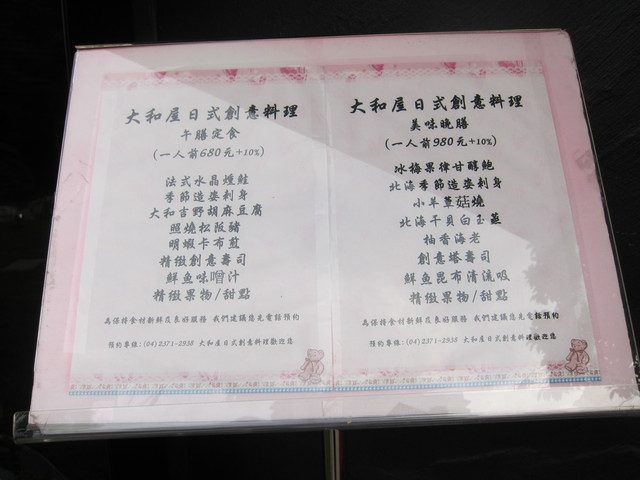 大和屋日式創意料理
午膳定食
(一人前680元+10%)
法式水晶燻鮭
季節造姿刺身
大和吉野胡麻豆腐
照燒松阪豬
明蝦卡布煎
精緻創意壽司
鮮魚味噌汁
精緻果物/甜點
為保持食材新鮮及良好服務 我們建議您先電話預約
預約專線:(04)2371-2938 大和屋日式創意料理歡迎您
大和屋日式創意料理
美味晚膳
(一人前980元+10%)
冰梅果律甘醇鮑
北海季節造姿刺身
小羊蕈菇燒
北海干貝白玉蒸
柚香海老
創意塔壽司
鮮魚昆布清流吸
精緻果物/甜點
為保持食材新鮮及良好服務 我們建議您先電話預約
預約專線:(04)2371-2938 大和屋日式創意料理歡迎您